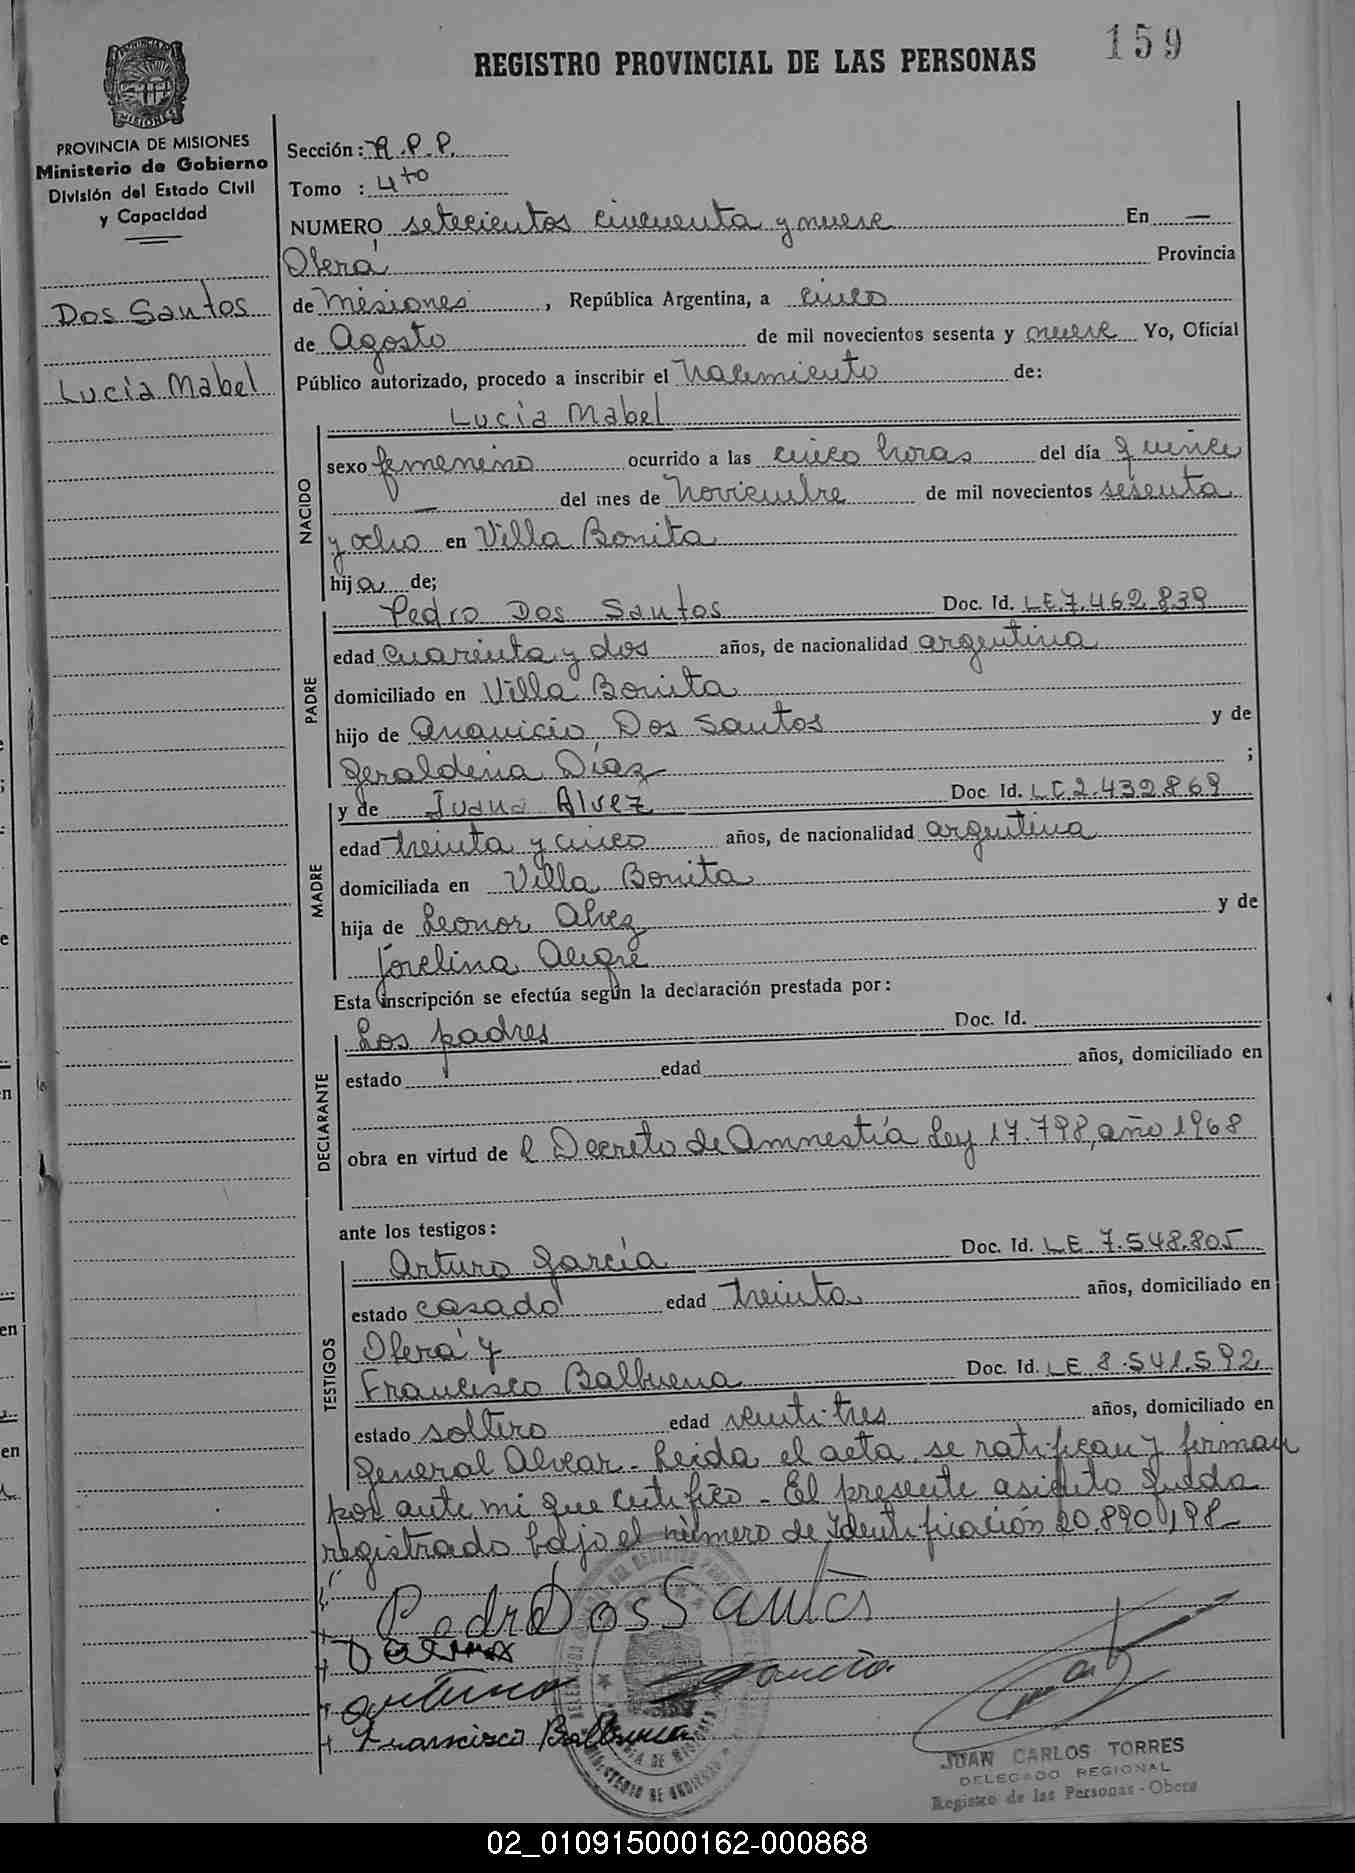 159
REGISTRO PROVINCIAL DE LAS PERSONAS
PROVINCIA DE MISIONES
Ministerio de Gobierno
División del Estado Civil
y Capacidad
Dos Santos
Lucía Mabel
Sección: R.P.P.
Tomo : 4to
NUMERO setecientos cincuenta y nueve En —
Oberá Provincia
de Misiones, República Argentina, a cinco
de Agosto de mil novecientos sesenta y nueve Yo, Oficial
Público autorizado, procedo a inscribir el Nacimiento de:
Lucía Mabel
NACIDO
sexo femenino ocurrido a las cinco horas del día quince
— del mes de Noviembre de mil novecientos sesenta
y ocho en Villa Bonita
hija de;
PADRE
Pedro Dos Santos Doc. Id. LE.7.462.839
edad cuarenta y dos años, de nacionalidad argentina
domiciliado en Villa Bonita
hijo de Dos Santos y de
Geraldina Díaz ;
MADRE
y de Juana Alvez Doc. Id. LC 2.432.869
edad treinta y cinco años, de nacionalidad argentina
domiciliada en Villa Bonita
hija de Leonor Alvez y de
Jovelina Alegre
Esta inscripción se efectúa según la declaración prestada por:
DECLARANTE
Los padres Doc. Id.
estado edad años, domiciliado en
obra en virtud de l Decreto de Amnestía Ley 17.798, año 1968
ante los testigos:
TESTIGOS
Arturo García Doc. Id. LE 7.548.805
estado casado edad treinta años, domiciliado en
Oberá y
Francisco Balbuena Doc. Id. LE 8.541.592
estado soltero edad veinti-tres años, domiciliado en
General Alvear - Leida el acta, se ratifican y firman
por ante mi que certifico - El presente asiento queda
registrado bajo el número de Identificación 20.890.198
Pedro Dos Santos
Arturo García
Francisco Balbuena
JUAN CARLOS TORRES
DELEGADO REGIONAL
Registro de las Personas - Obera
02_010915000162-000868